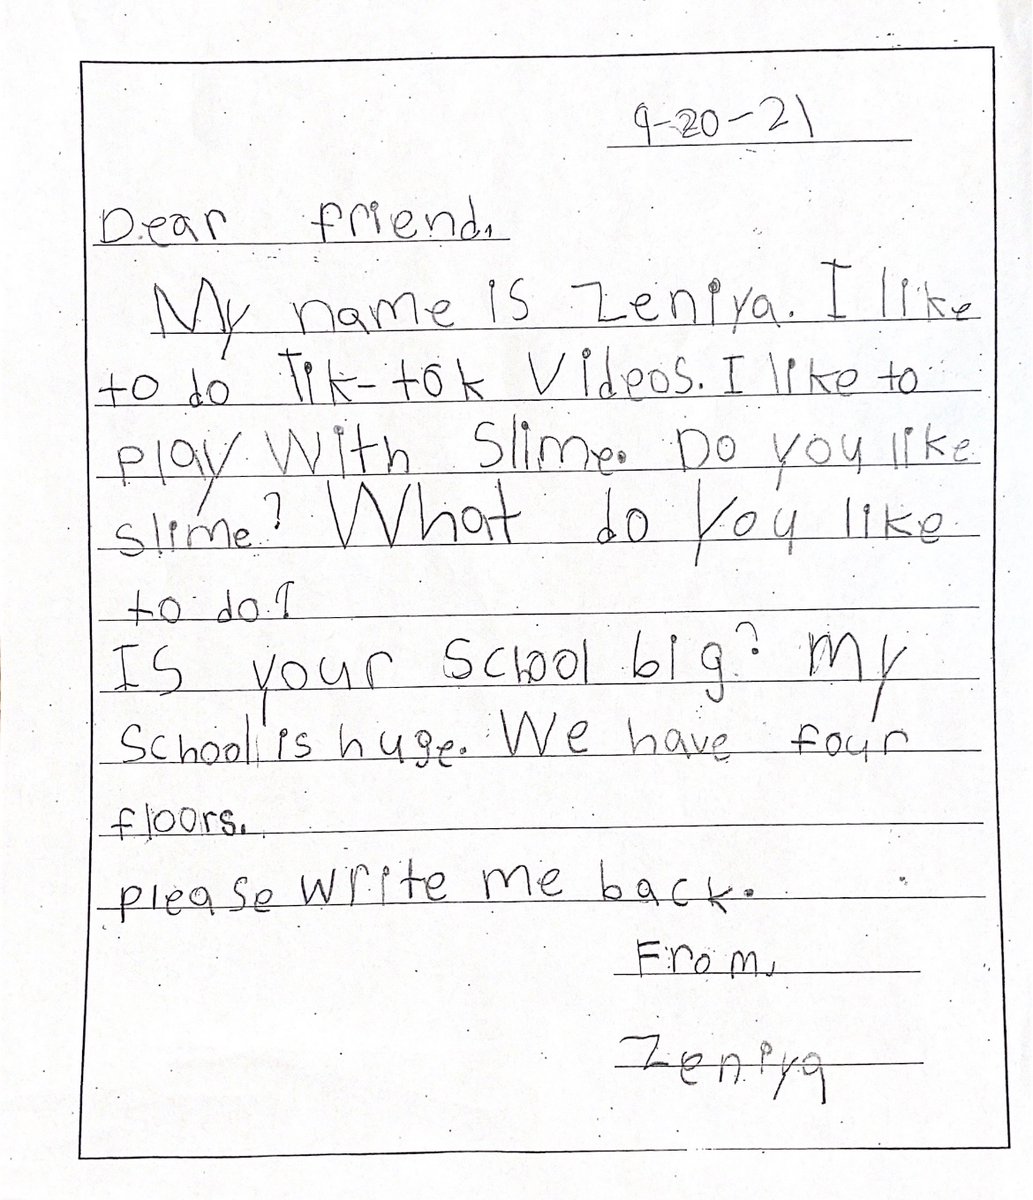 9-20-21
Dear friend,
My name is Zeniya. I like
to do Tik-tok Videos. I like to
play With Slime. Do you like
slime? What do you like
to do?
IS your School big? My
School is huge. We have four
floors.
please write me back.
From,
Zeniya